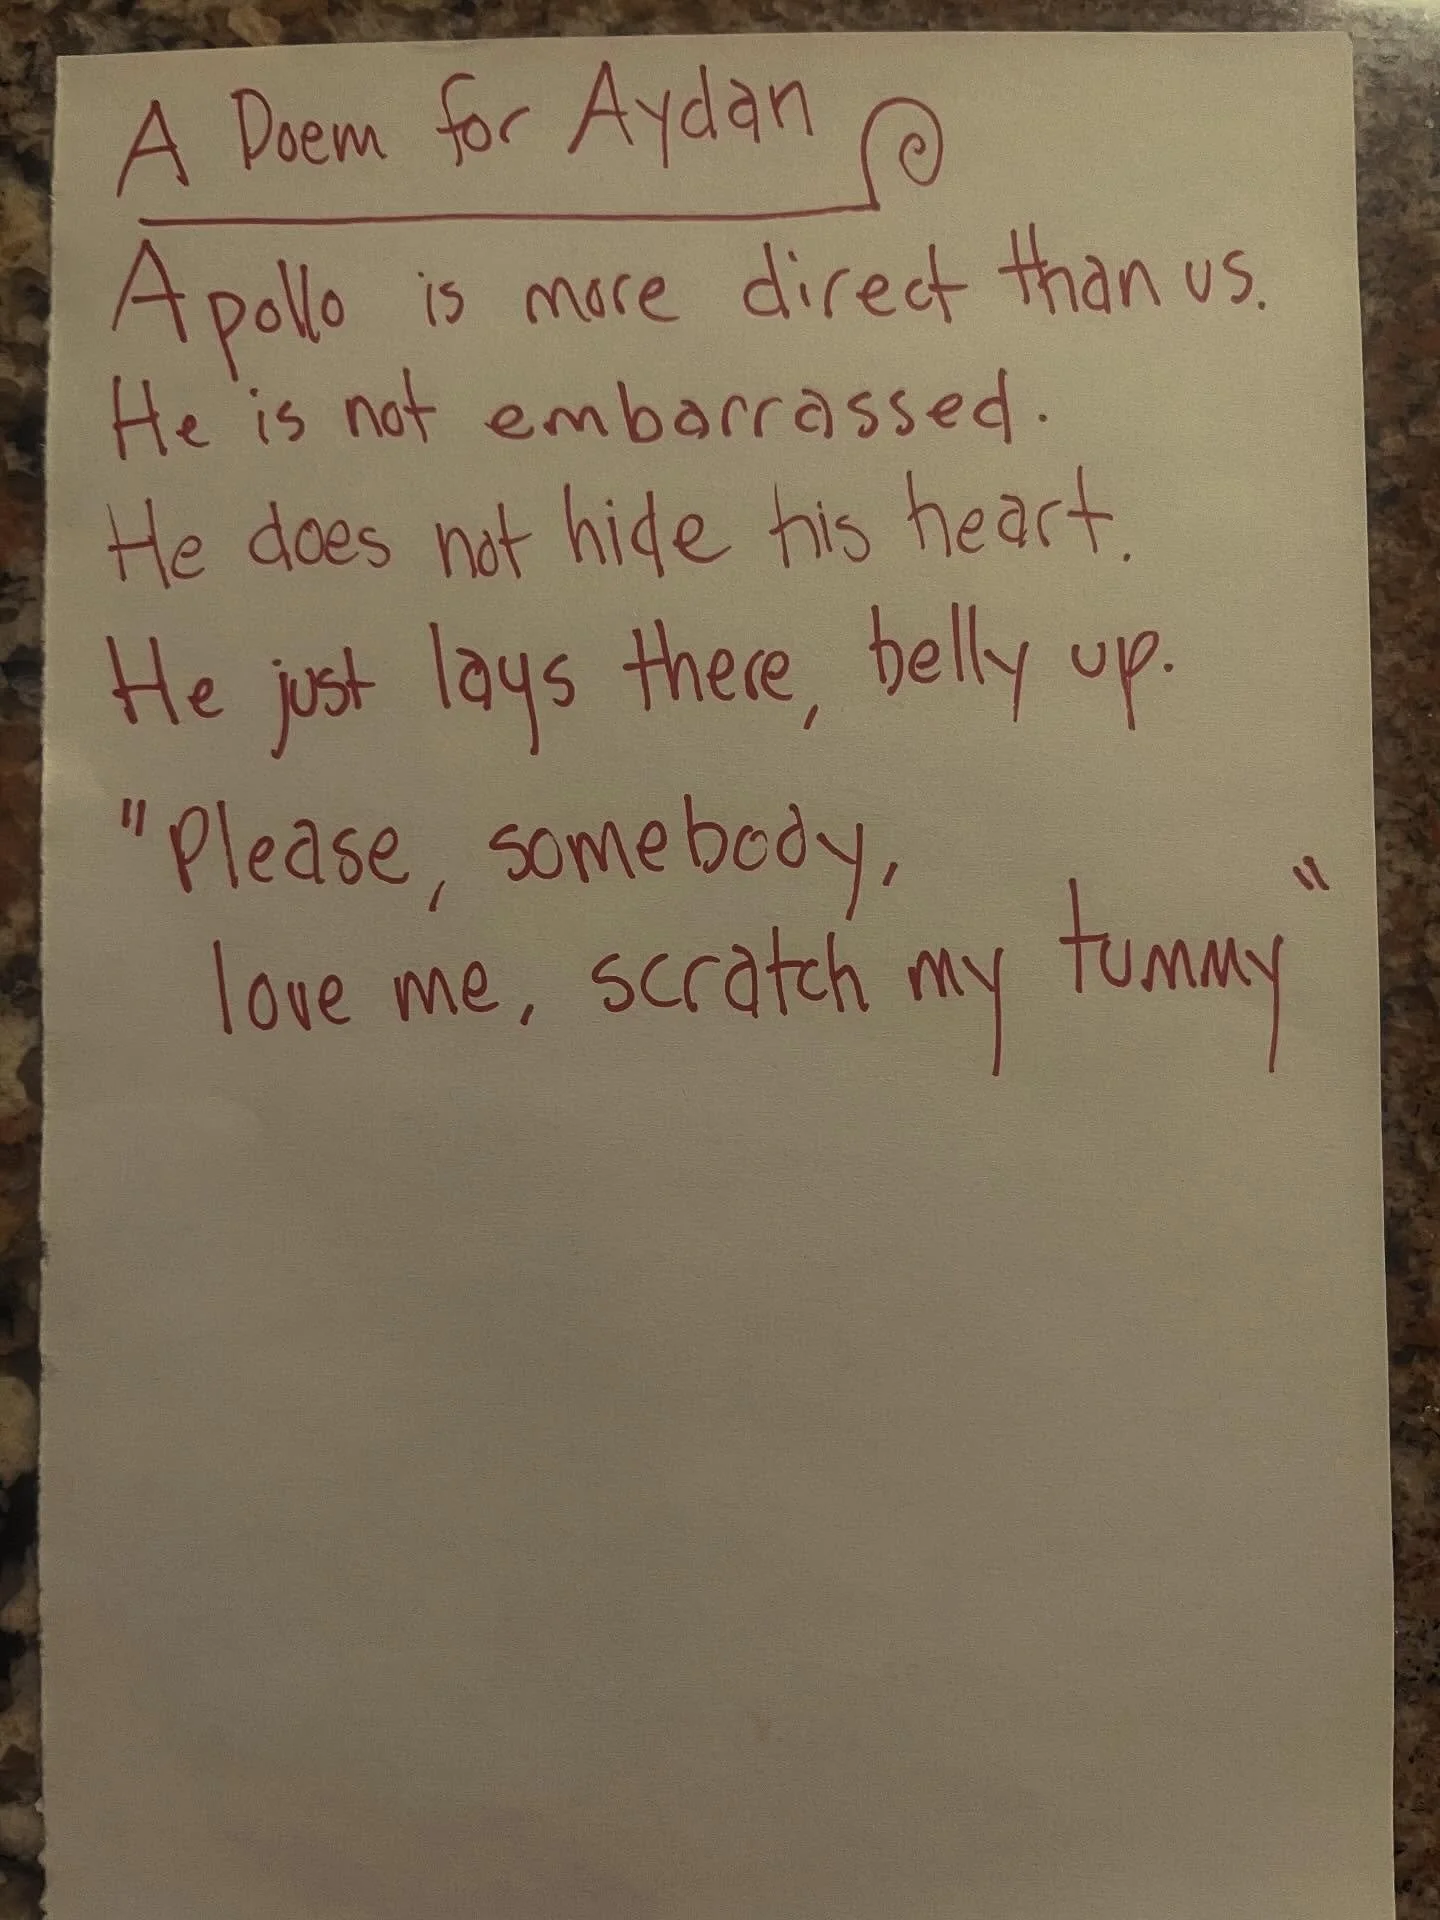 A Poem for Aydan
Apollo is more direct than us.
He is not embarrassed.
He does not hide his heart.
He just lays there, belly up.
"Please, somebody,
love me, scratch my tummy"